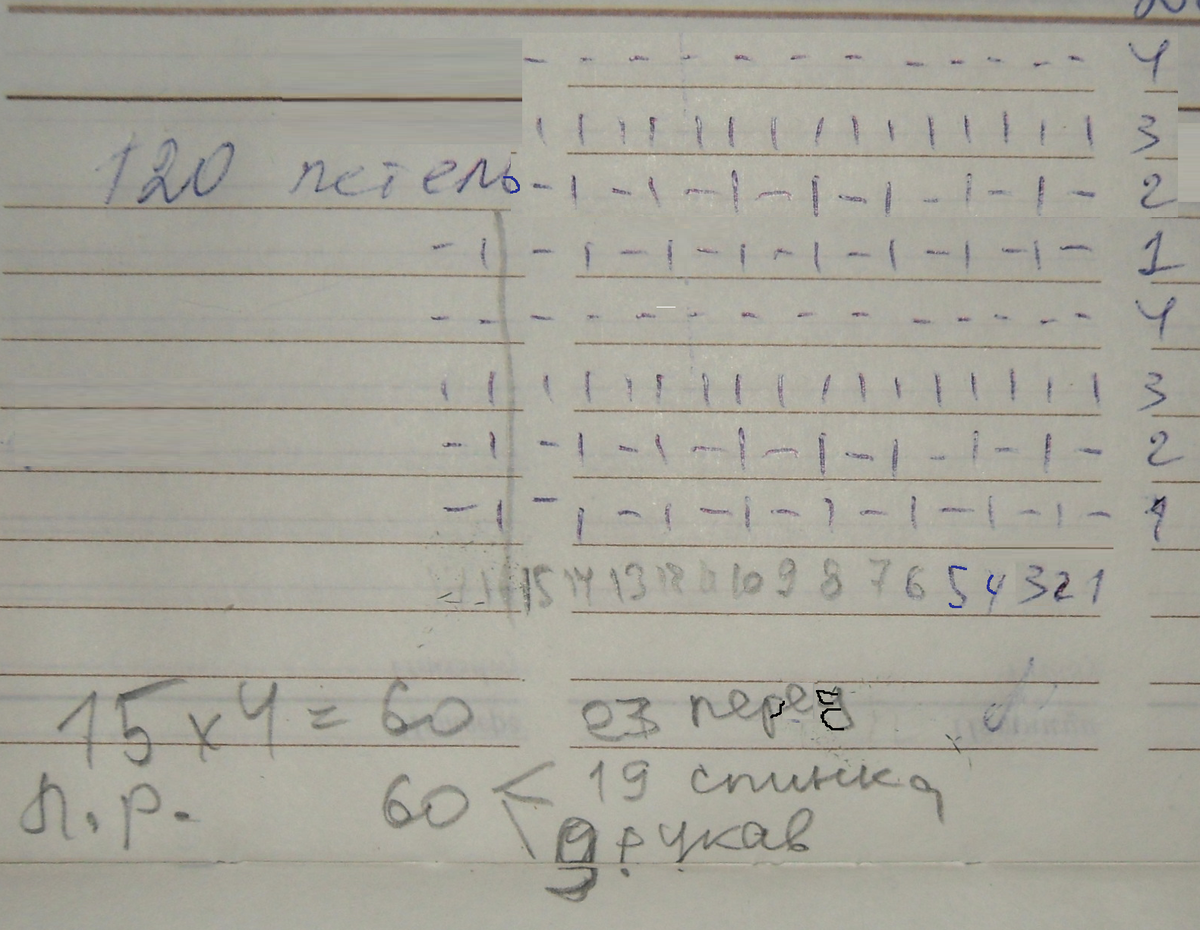 - - - - - - - - - - - - - 4
| | | | | | | | | | | | | | | 3
120 петель - | - | - | - | - | - | - | - 2
- | - | - | - | - | - | - | - | - 1
- - - - - - - - - - - - - - - 4
| | | | | | | | | | | | | | | | | 3
- | - | - | - | - | - | - | - | - 2
- | - | - | - | - | - | - | - | - 1
15 14 13 12 11 10 9 8 7 6 5 4 3 2 1
15 x 4 = 60 перед
п.р. 60 < 19 спинка
9 рукав